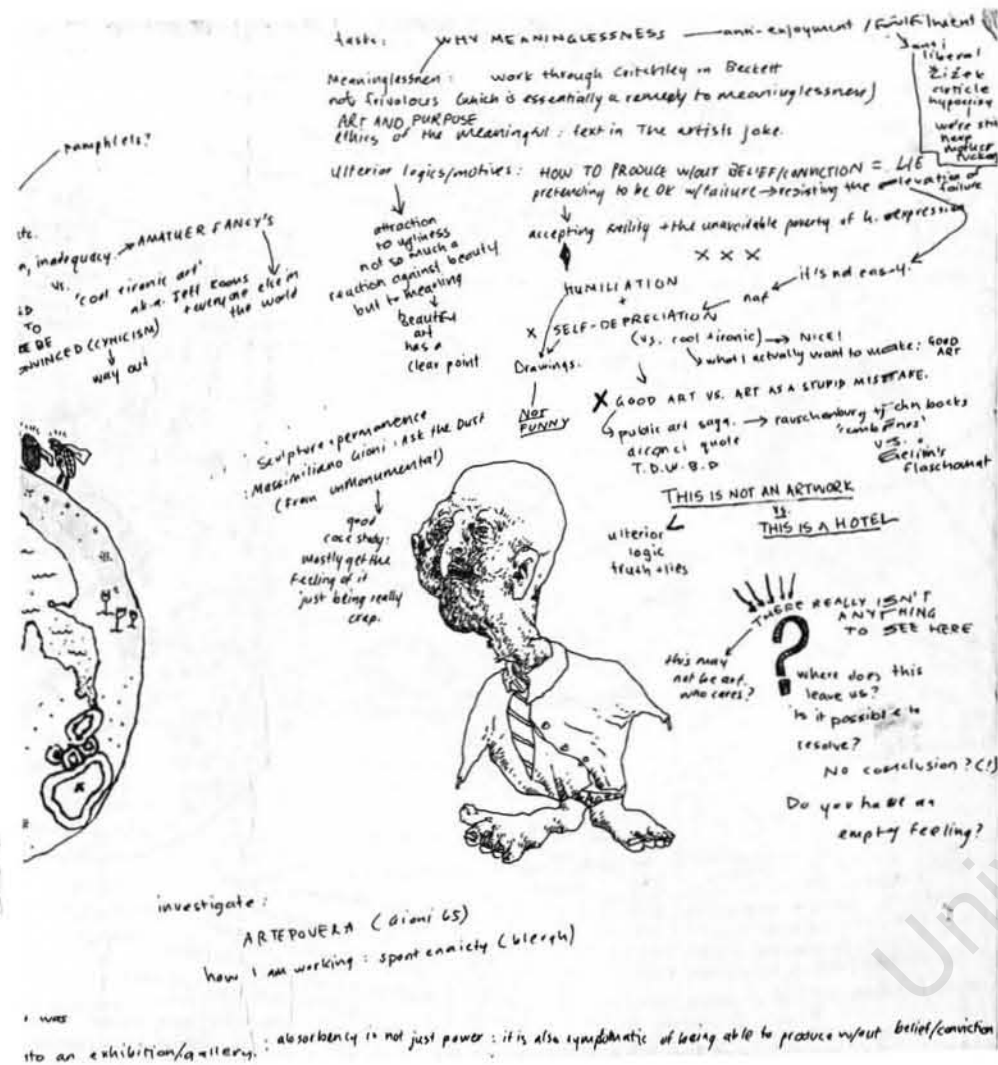 taste: WHY MEANINGLESSNESS — anti-enjoyment / Fulfilment
anti
liberal
Žižek
article
hypocrisy
we're still
here
mother
fuckers
Meaninglessness: work through Critchley on Beckett
not frivolous (which is essentially a remedy to meaninglessness)
ART AND PURPOSE
ethics of the meaningful: text in The artists joke.
pamphlets?
Ulterior logics/motives: HOW TO PRODUCE W/OUT BELIEF/CONVICTION = LIE
pretending to be OK w/failure → resisting the elevation of
failure
accepting futility + the unavoidable poverty of h. expression
X X X
it's not easy.
naf
attraction
to ugliness
not so much a
reaction against beauty
but to meaning
beautiful
art
has a
clear point
inadequacy. → AMATUER FANCY'S
vs. 'cool + ironic art'
a.k.a. Jeff Koons
+ everyone else in
the world
TO
BE
(CYNICISM)
way out
HUMILIATION
+
X SELF-DEPRECIATION
(vs. cool + ironic) → NICE!
what I actually want to make: GOOD
ART
Drawings.
NOT
FUNNY
X GOOD ART VS. ART AS A STUPID MISSTAKE.
public art saga. → rauschenburg
'combines'
vs.
Gelitin's
quote
T.D.W.B.D
THIS IS NOT AN ARTWORK
vs
THIS IS A HOTEL
ulterior
logic
truth + lies
Sculpture + permanence
: Massimiliano Gioni: Ask the Dust
(from unMonumental)
good
case study:
mostly get the
feeling of it
just being really
crap.
THERE REALLY ISN'T
ANYTHING
TO SEE HERE
?
this may
not be art.
who cares?
where does this
leave us?
is it possible to
resolve?
No conclusion? (!)
Do you have an
empty feeling?
investigate:
ARTEPOVERA (Gioni 65)
how I am working: spontenniety (blergh)
I was
into an exhibition/gallery. : absorbency is not just power: it is also symptomatic of being able to produce w/out belief/conviction
Uni